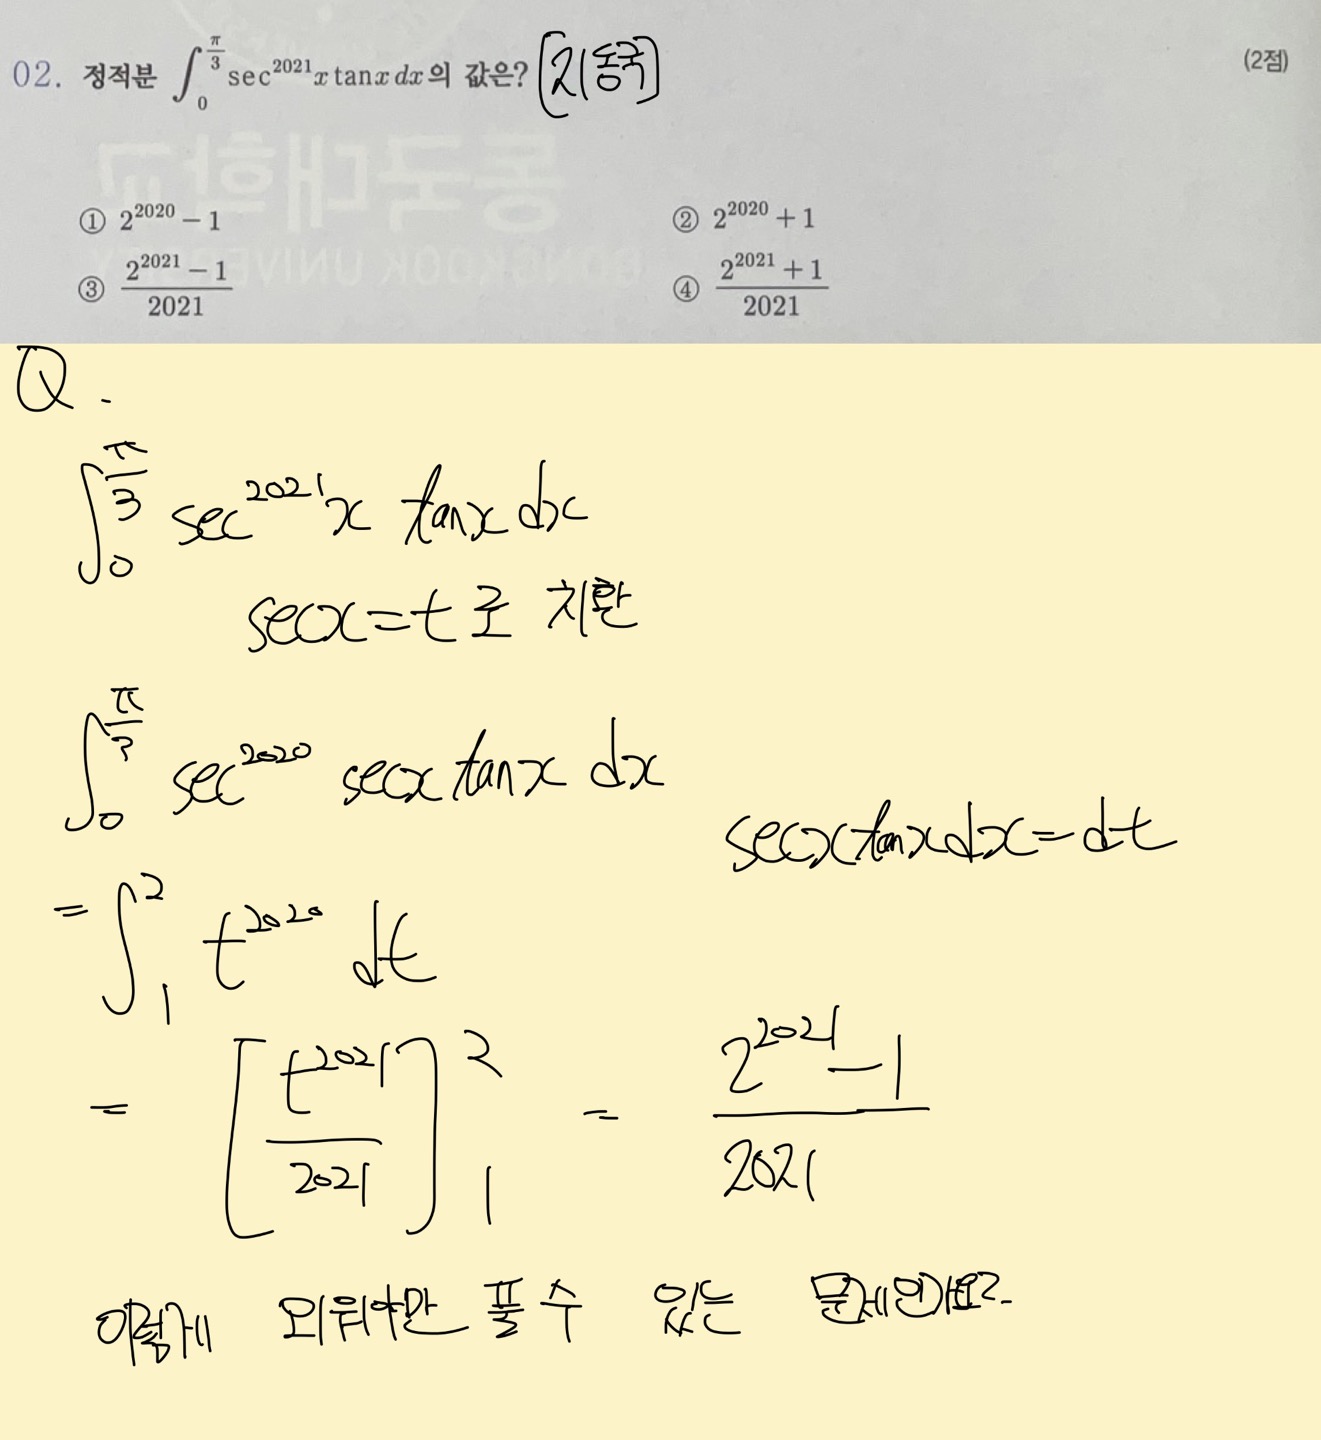 02. 정적분 ∫₀^(π/3) sec²⁰²¹x tanx dx의 값은? [21동국] (2점)
① 2²⁰²⁰ − 1 ② 2²⁰²⁰ + 1
③ (2²⁰²¹ − 1)/2021 ④ (2²⁰²¹ + 1)/2021
동국대학교
DONGKOOK UNIVERSITY
Q.
∫₀^(π/3) sec²⁰²¹x tanx dx
secx=t로 치환
∫₀^(π/3) sec²⁰²⁰ secx tanx dx
secxtanxdx=dt
= ∫₁² t²⁰²⁰ dt
= [t²⁰²¹/2021]₁² = (2²⁰²¹−1)/2021
이렇게 외워야만 풀 수 있는 문제인가요?